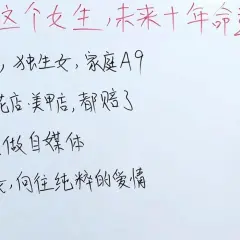 这个女生,未来十年命
,独生女,家庭A9
店·美甲店,都赔了
做自媒体
,向往纯粹的爱情